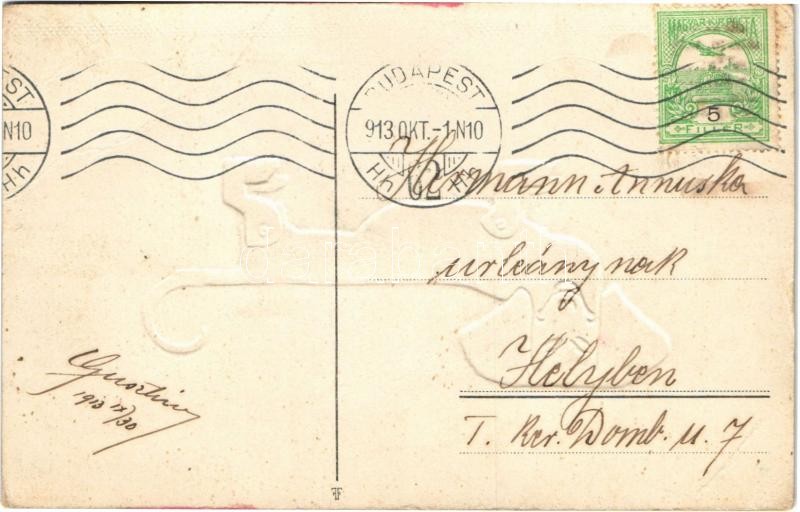 MAGYAR KIR. POSTA
5
FILLÉR
BUDAPEST
913 OKT. -1. N10
Hh 62 Hh
N10
Hh
Hermann Annuska
urleánynak
Helyben
I. Ker. Domb. u. 7
1913 IX/30